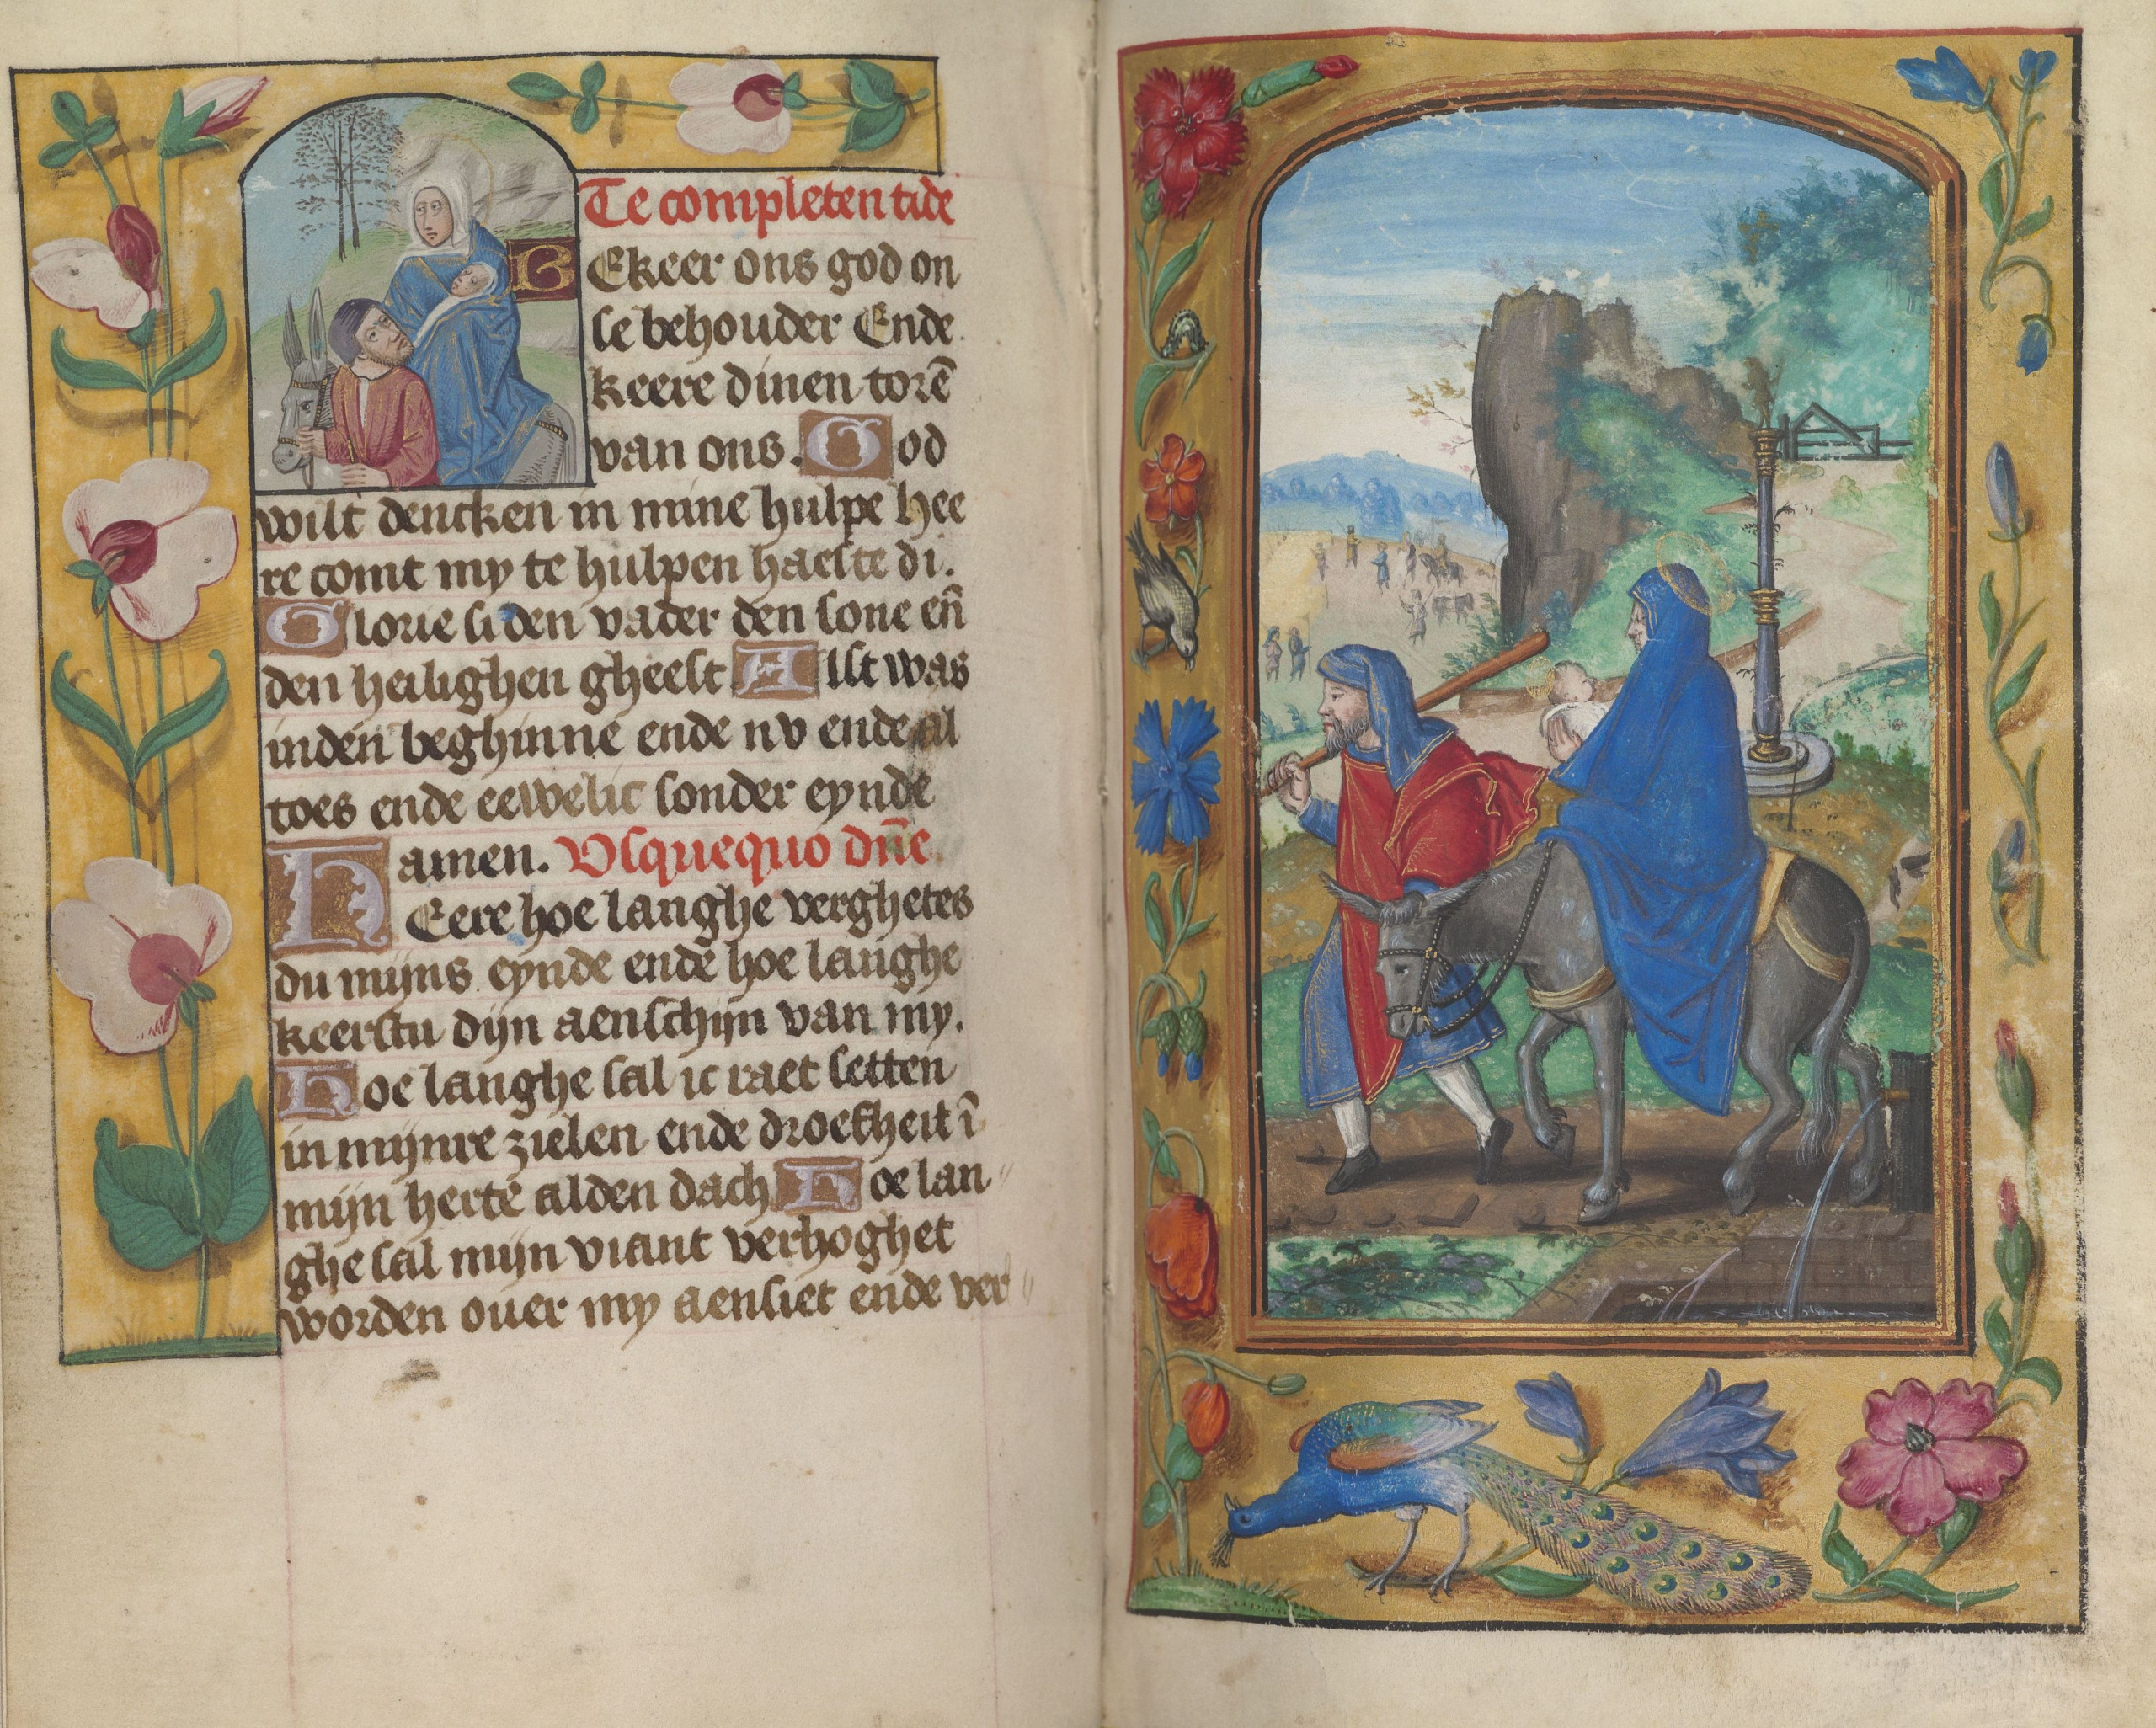 Te completen tide
BEkeer ons god on
se behouder Ende
keere dinen torē
van ons. God
wilt dencken in mine hulpe hee
re comt my te hulpen haeste di.
Glorie si den vader den sone en̄
den heilighen gheest Alst was
inden beghinne ende nv ende al
toes ende eewelic sonder eynde
amen. Vsquequo dn̄e
HEere hoe langhe verghetes
du mijns eynde ende hoe langhe
keerstu dijn aenschijn van my.
Hoe langhe sal ic raet setten
in mijnre zielen ende droefheit ī
mijn herte alden dach Hoe lan
ghe sal mijn viant verhoghet
worden ouer my aensiet ende ver